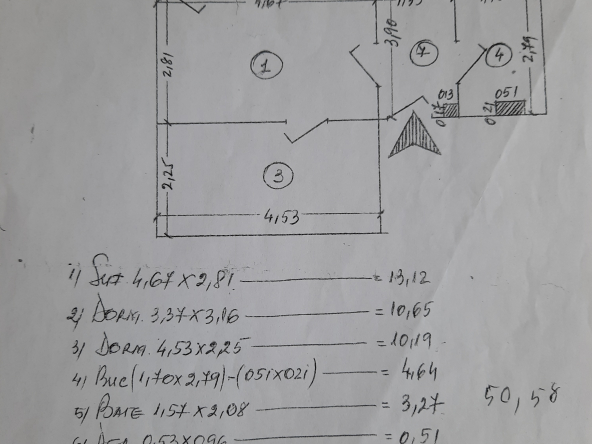 4,67
2,81
1
3,96
7
4
2,79
013
017
051
021
2,25
3
4,53
1) Suf. 4,67 x 2,81 = 13,12
2) Dorm. 3,37 x 3,16 = 10,65
3) Dorm. 4,53 x 2,25 = 10,19
4) Buc (1,70 x 2,79) - (051 x 021) = 4,64
5) Baie 1,57 x 2,08 = 3,27
50,58
0,53 x 096 = 0,51